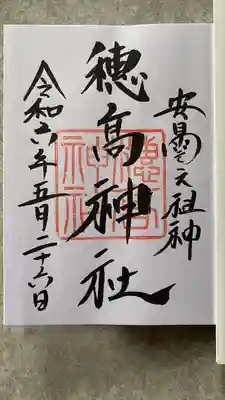 安曇之祖神
穂高神社
令和六年五月二十六日